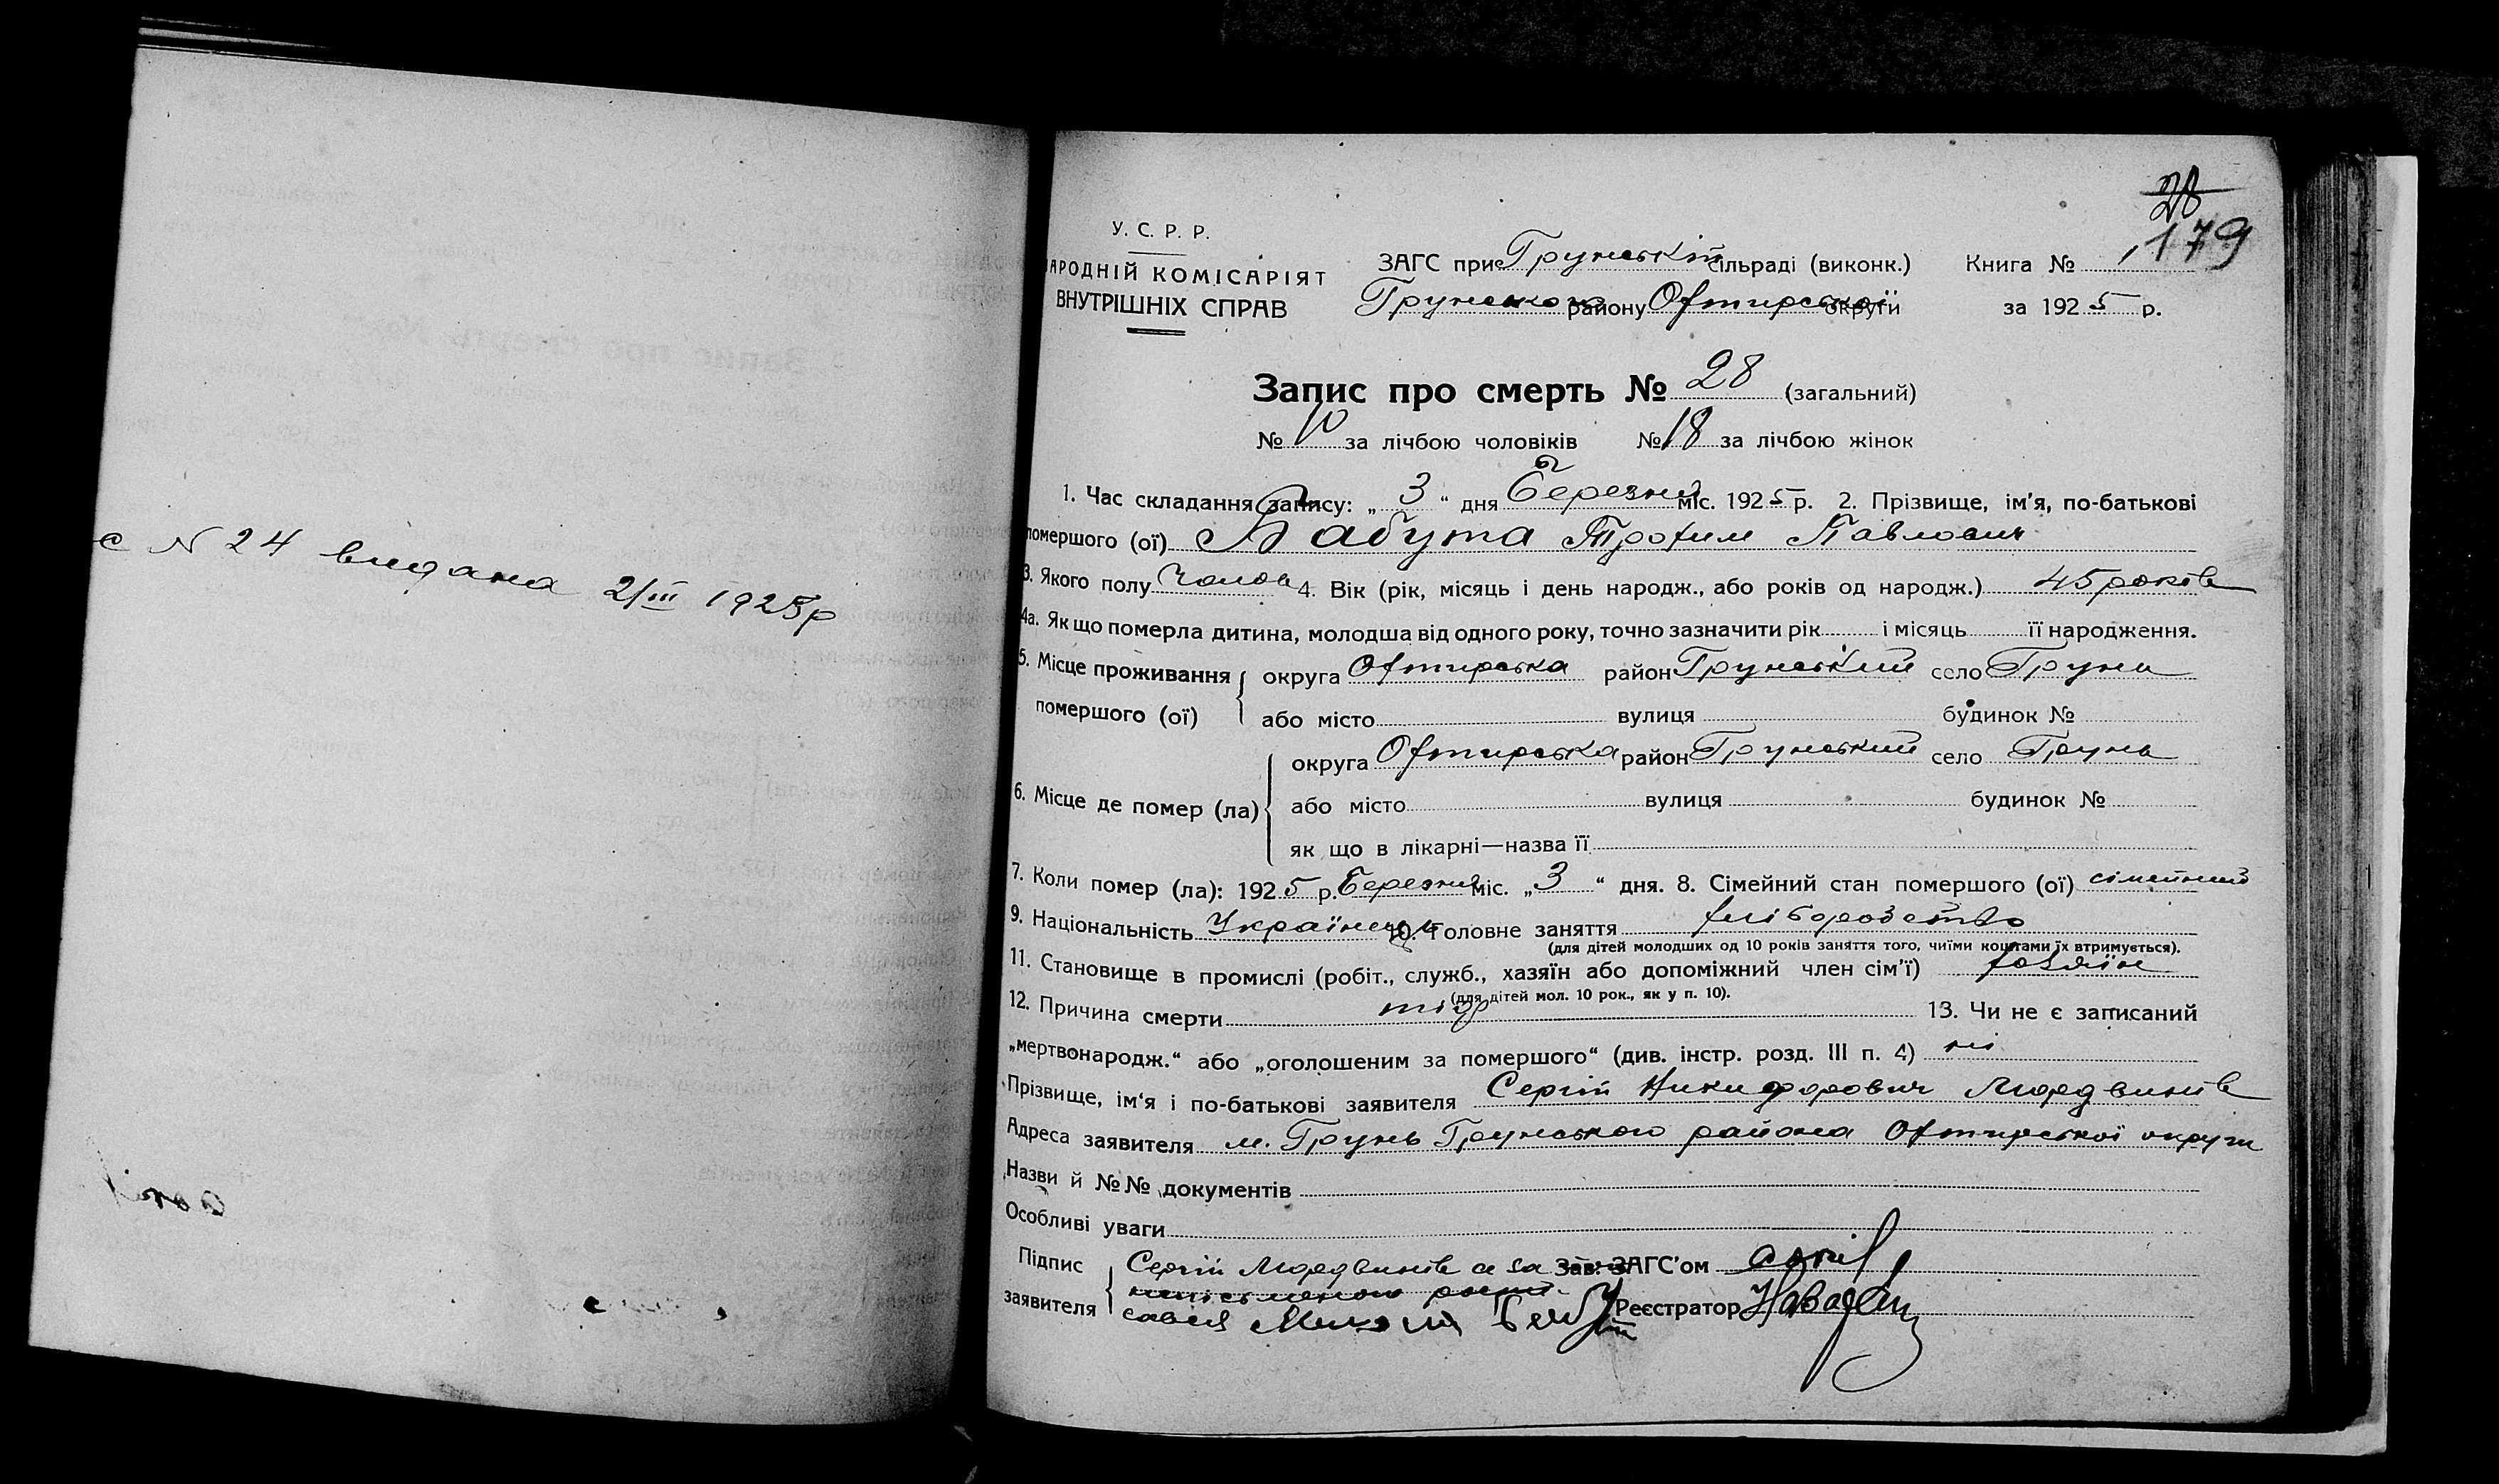 с N 24 видана 2/III 1925р
28
179
У. С. Р. Р.
НАРОДНІЙ КОМІСАРІЯТ
ВНУТРІШНІХ СПРАВ
ЗАГС при Грунській сільраді (виконк.)
Грунського району Охтирської округи
Книга №
за 1925 р.
Запис про смерть № 28 (загальний)
№ 10 за лічбою чоловіків № 18 за лічбою жінок
1. Час складання запису: „ 3 “ дня Березня міс. 1925 р. 2. Прізвище, ім’я, по-батькові
помершого (ої) Бабута Трохим Павлович
3. Якого полу Чолов 4. Вік (рік, місяць і день народж., або років од народж.) 45 років
4а. Як що померла дитина, молодша від одного року, точно зазначити рік і місяць її народження.
5. Місце проживання округа Охтирська район Грунський село Грунь
помершого (ої) або місто вулиця будинок №
округа Охтирська район Грунський село Грунь
6. Місце де помер (ла) або місто вулиця будинок №
як що в лікарні—назва її
7. Коли помер (ла): 1925 р. Березня міс. „3“ дня. 8. Сімейний стан помершого (ої) сімейний
9. Національність Українець 10. Головне заняття хліборобство
(для дітей молодших од 10 років заняття того, чиїми коштами їх втримується).
11. Становище в промислі (робіт., служб., хазяїн або допоміжний член сім’ї) хазяїн
(для дітей мол. 10 рок., як у п. 10).
12. Причина смерти тіф 13. Чи не є записаний
„мертвонародж.“ або „оголошеним за помершого“ (див. інстр. розд. III п. 4) ні
Прізвище, ім‘я і по-батькові заявителя Сергій Никифорович Мордвинів
Адреса заявителя м. Грунь Грунського района Охтирської округи
Назви й №№ документів
Особливі уваги
Підпис Сергій Мордвинів а за Зав. ЗАГС’ом
заявителя
Реєстратор